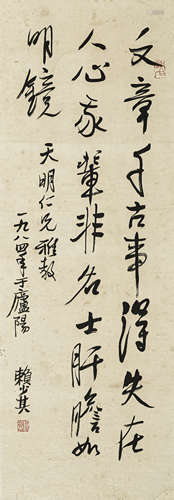 文章千古事得失在
人心我辈非名士肝胆如
明镜
天明仁兄雅教
一九八四年于廬陽
賴少其